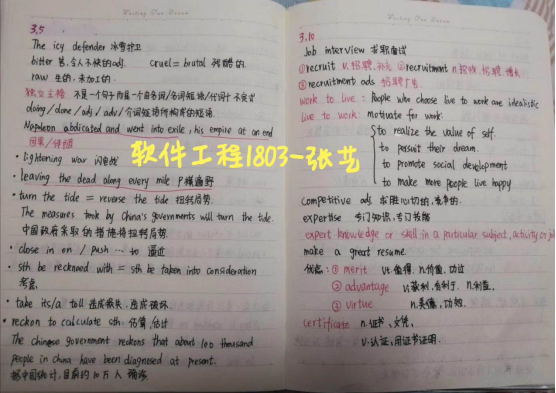 Working Our Dream
3.5
The icy defender 冰雪护卫
bitter 苦、令人不快的adj. cruel = brutal 残酷的.
raw 生的,未加工的.
独立主格: 不是一个句子而是一个由名词/名词短语/代词+不定式
doing/done/adj/adv/介词短语所构成的短语.
Napoleon abdicated and went into exile, his empire at an end
因果/伴随
• lightening war 闪电战
• leaving the dead along every mile 尸横遍野
• turn the tide = reverse the tide 扭转局势.
The measures took by China's governments will turn the tide.
中国政府采取的措施将扭转局势.
• close in on / push … to 逼近
• sth be reckoned with = sth be taken into consideration
考虑
• take its/a toll 造成损失、造成破坏
• reckon to calculate sth. 估算,估计
The chinese government reckons that about 100 thousand
people in china have been diagnosed at present.
据中国估计,目前约10万人 确诊.
软件工程1803-张艺
3.10
Job interview 求职面试
①recruit v.招聘,补充 ②recruitment n.招收,招聘,增长
③recruitment ads 招聘广告
work to live: People who choose live to work are idealistic
live to work: motivate for work:
to realize the value of self.
to persuit their dream.
to promote social development
to make more people live happy
competitive adj. 求胜心切的,竞争的.
expertise 专门知识,专门技能
expert knowledge or skill in a particular subject, activity or
make a great resume.
优点: ① merit vt.值得, n.价值、功过
② advantage v.获利,有利于. n.利益,
③ virtue n.美德,功效.
certificate n.证书,文凭,
v.认证,用证书证明.